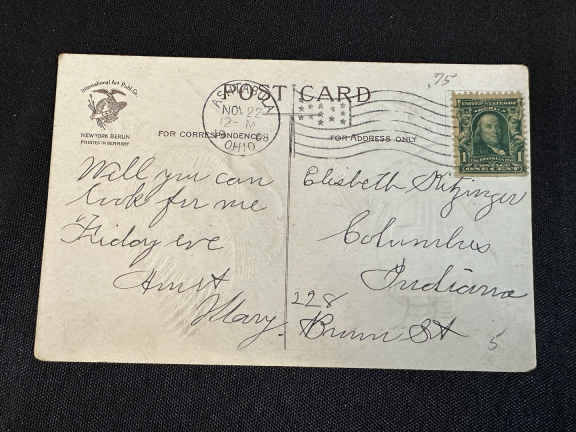 International Art Publ. Co.
NEW YORK BERLIN
PRINTED IN GERMANY
POST CARD
FOR CORRESPONDENCE
FOR ADDRESS ONLY
ASHTABULA
NOV 22
12- M
08
OHIO
.75
UNITED STATES
1 1
ONE CENT
Well you can
look for me
Friday eve
Aunt
Mary.
Elisbeth Kitzinger
Columbus
Indiana
228
St
5